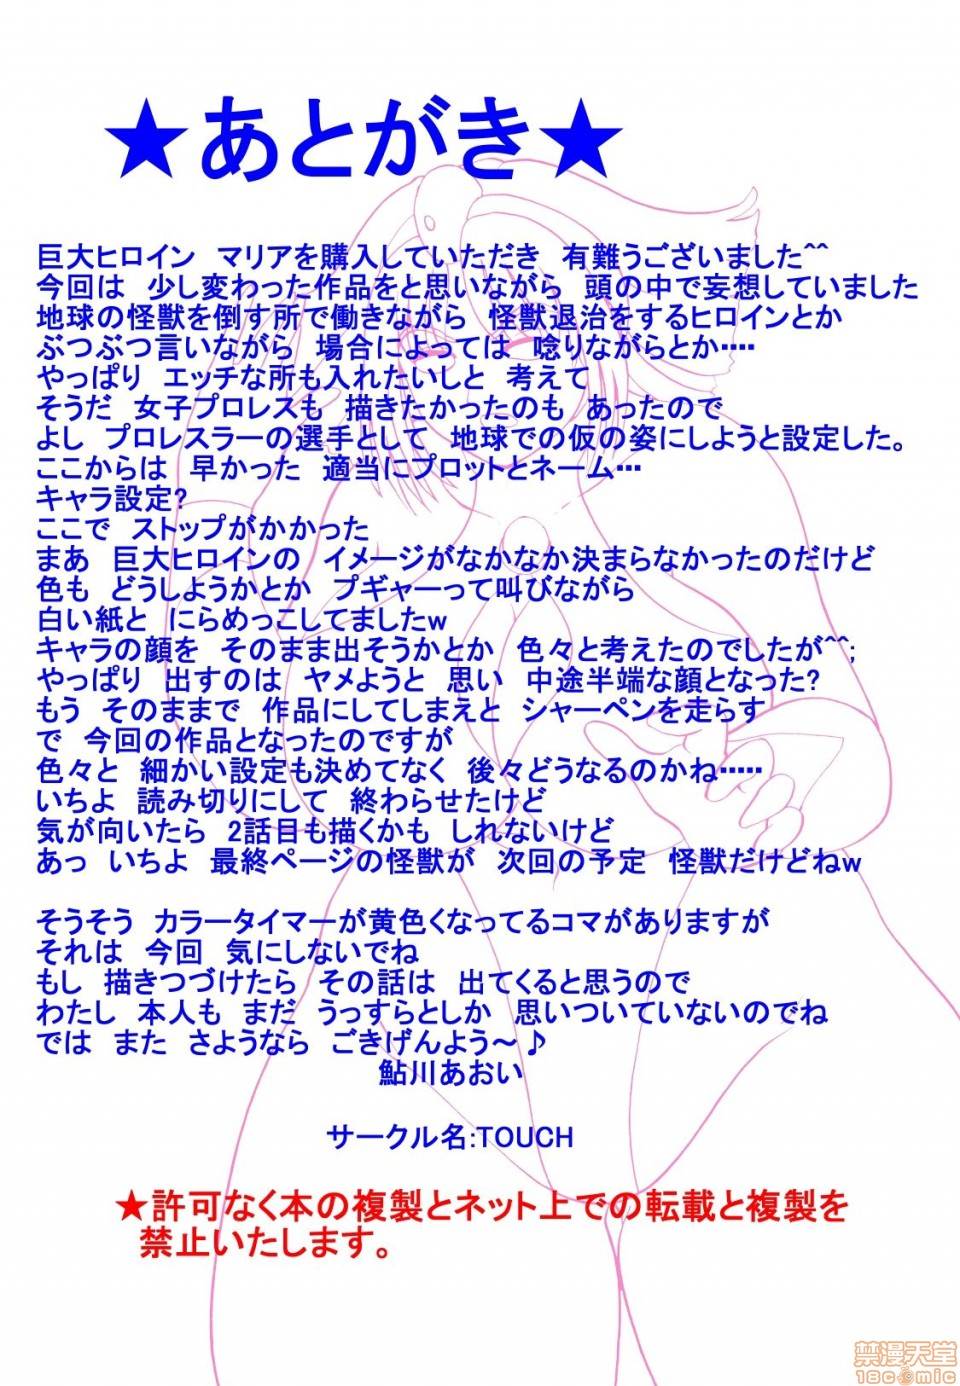 ★あとがき★
巨大ヒロイン　マリアを購入していただき　有難うございました^^
今回は　少し変わった作品をと思いながら　頭の中で妄想していました
地球の怪獣を倒す所で働きながら　怪獣退治をするヒロインとか
ぶつぶつ言いながら　場合によっては　唸りながらとか‥‥
やっぱり　エッチな所も入れたいしと　考えて
そうだ　女子プロレスも　描きたかったのも　あったので
よし　プロレスラーの選手として　地球での仮の姿にしようと設定した。
ここからは　早かった　適当にプロットとネーム…
キャラ設定?
ここで　ストップがかかった
まあ　巨大ヒロインの　イメージがなかなか決まらなかったのだけど
色も　どうしようかとか　プギャーって叫びながら
白い紙と　にらめっこしてましたw
キャラの顔を　そのまま出そうかとか　色々と考えたのでしたが^^;
やっぱり　出すのは　ヤメようと　思い　中途半端な顔となった?
もう　そのままで　作品にしてしまえと　シャーペンを走らす
で　今回の作品となったのですが
色々と　細かい設定も決めてなく　後々どうなるのかね‥‥‥
いちよ　読み切りにして　終わらせたけど
気が向いたら　2話目も描くかも　しれないけど
あっ　いちよ　最終ページの怪獣が　次回の予定　怪獣だけどねw
そうそう　カラータイマーが黄色くなってるコマがありますが
それは　今回　気にしないでね
もし　描きつづけたら　その話は　出てくると思うので
わたし　本人も　まだ　うっすらとしか　思いついていないのでね
では　また　さようなら　ごきげんよう～♪
鮎川あおい
サークル名:TOUCH
★許可なく本の複製とネット上での転載と複製を
禁止いたします。
禁漫天堂
18comic.com